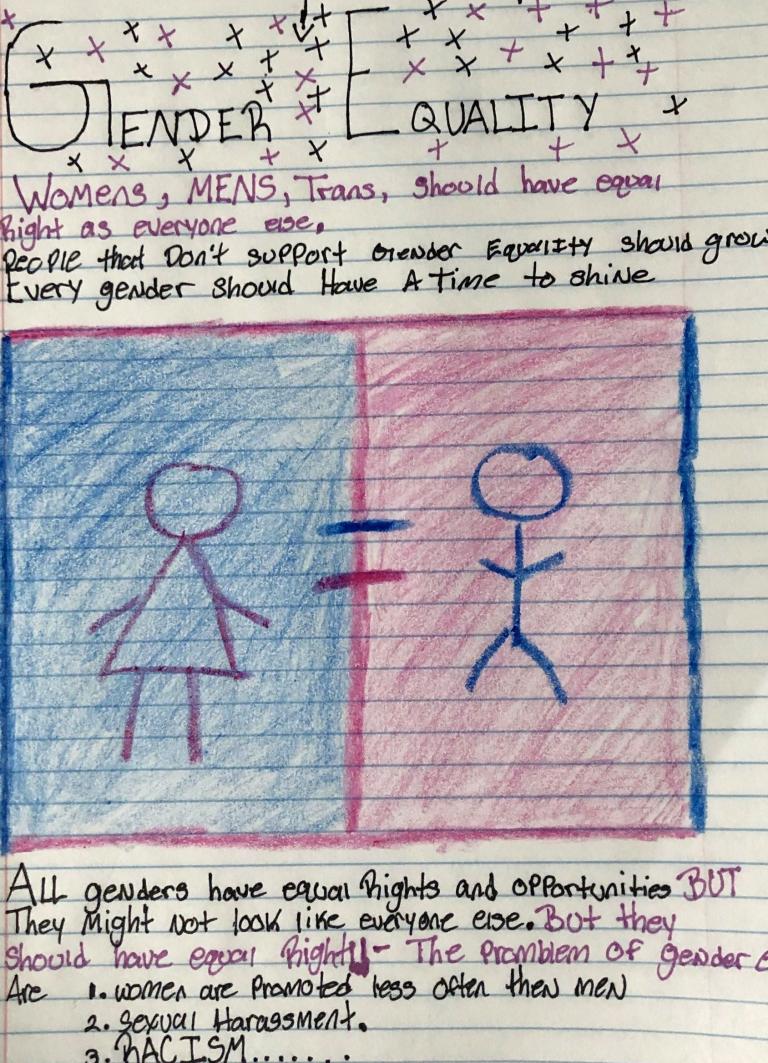 GENDER EQUALITY
Womens, MENS, Trans, should have equal
Right as everyone else.
PEOPLE that Don't support Gender Equality should grow
Every gender should Have A Time to shine
ALL genders have equal Rights and opportunities BUT
They Might Not look like everyone else. But they
should have equal Right!- The Promblem of gender
Are 1. women are Promoted less often then men
2. Sexual Harassment.
3. RACISM.......